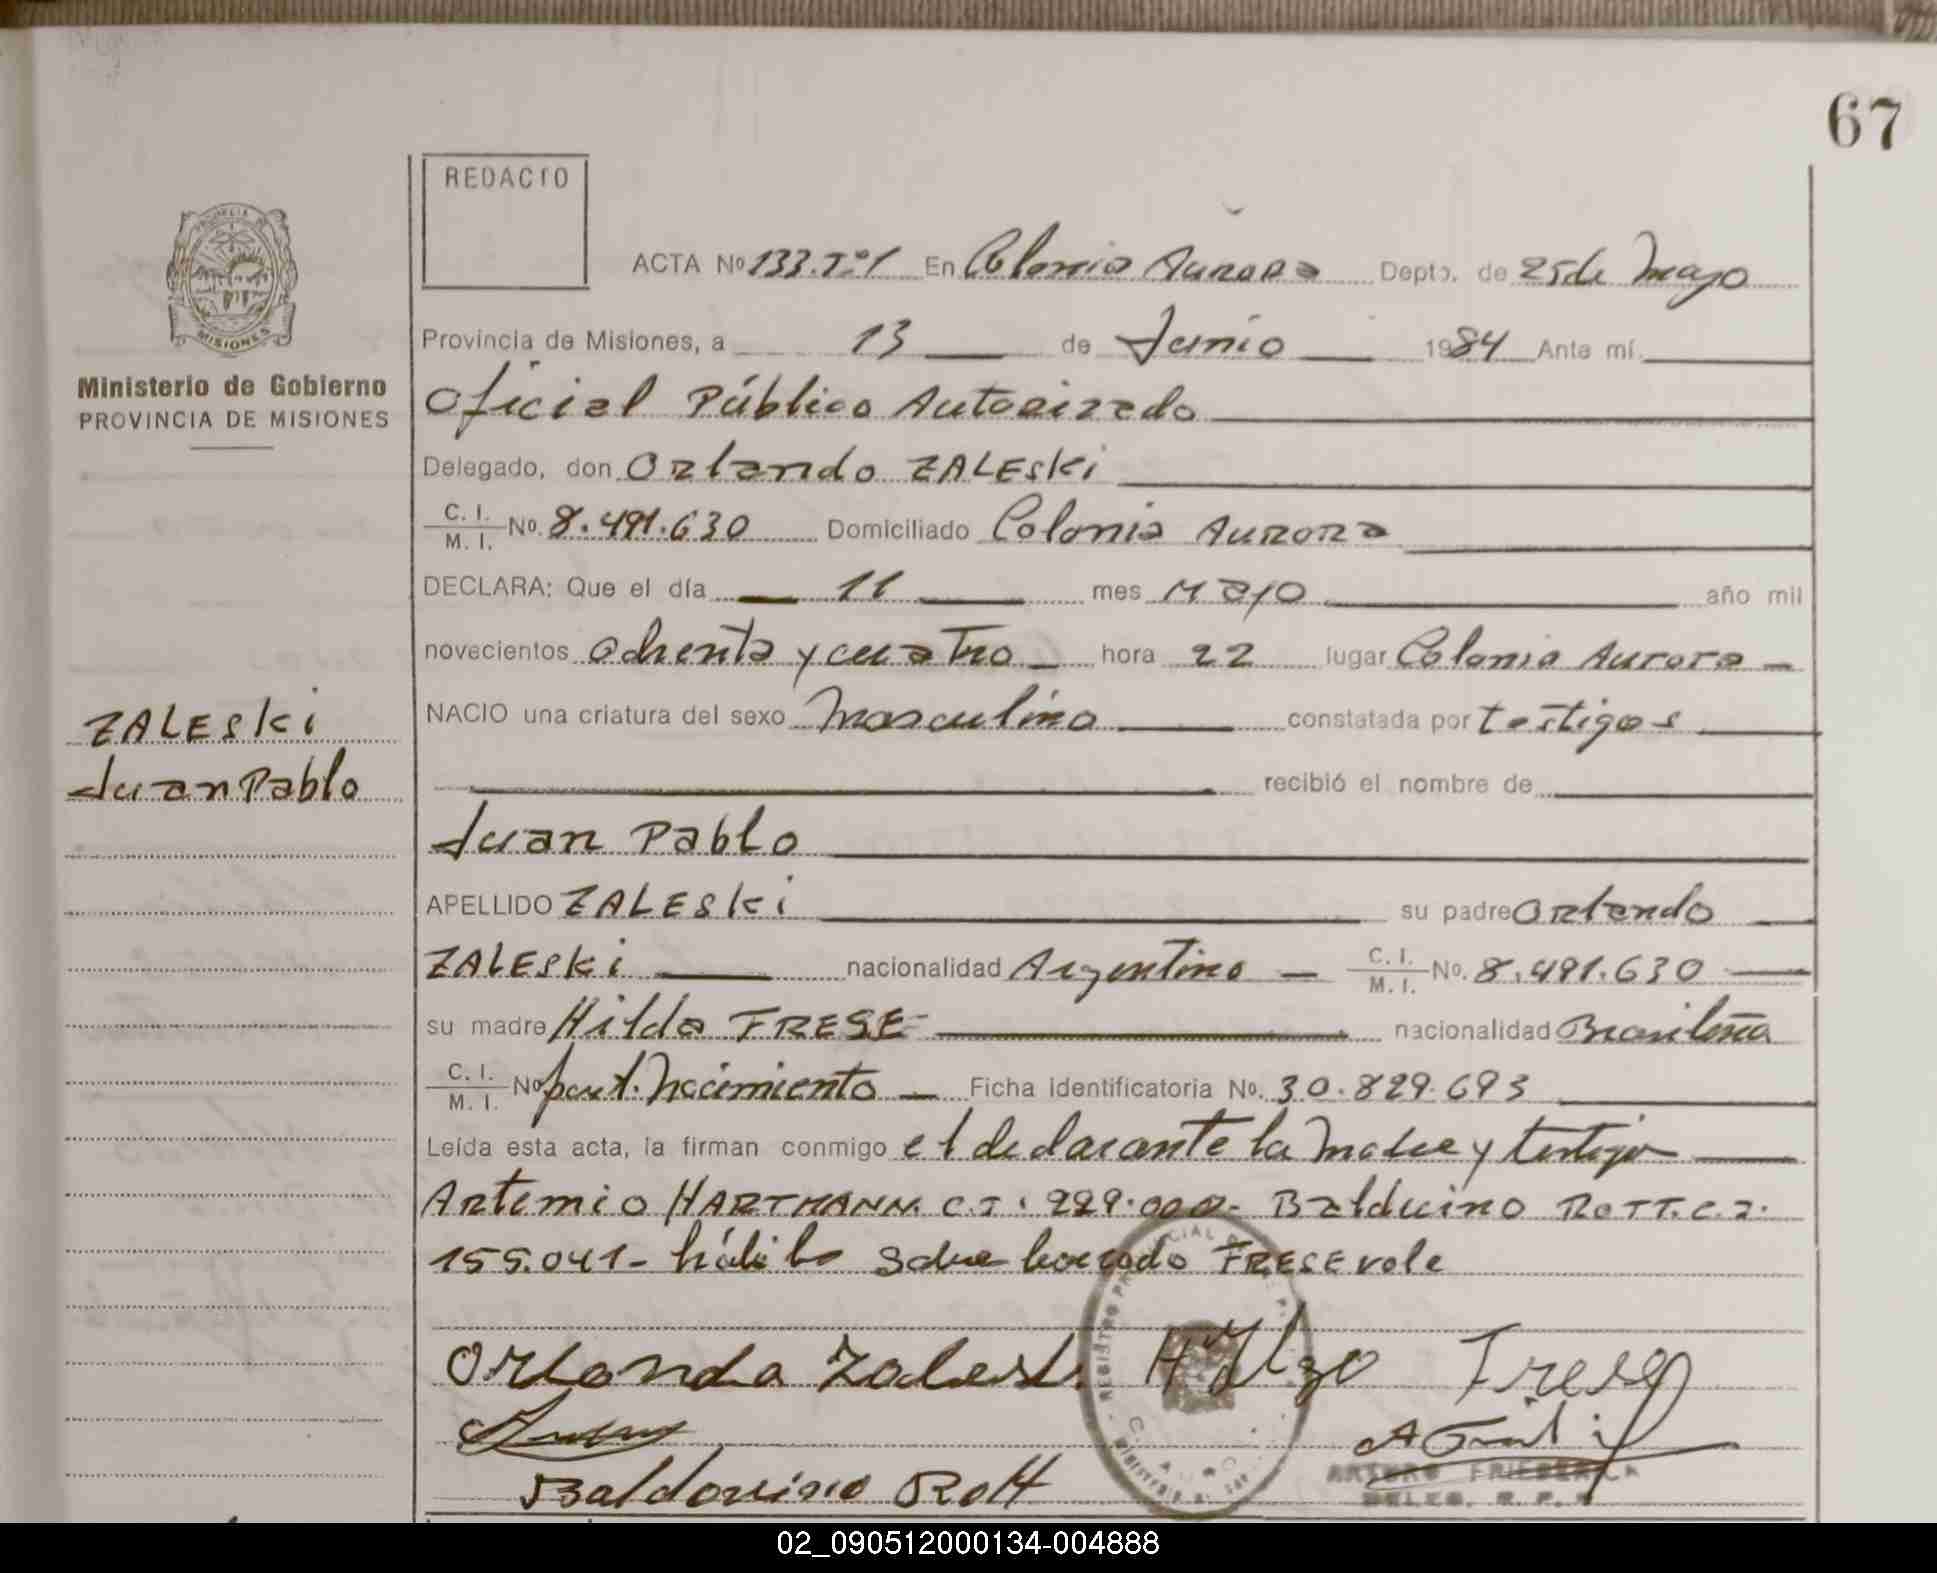 67
REDACTO
ACTA Nº 133.Tº1 En Colonia Aurora Depto. de 25 de Mayo
Provincia de Misiones, a 13 de Junio 1984 Ante mí.
Ministerio de Gobierno
PROVINCIA DE MISIONES
Oficial Público Autorizado
Delegado, don Orlando ZALESKi
C. I. / M. I. Nº. 8.491.630 Domiciliado Colonia AURORA
DECLARA: Que el día 11 mes MAyo año mil
novecientos ochenta y cuatro hora 22 lugar Colonia Aurora
NACIO una criatura del sexo Masculino constatada por testigos
recibió el nombre de
ZALESKi
Juan Pablo
Juan Pablo
APELLIDO ZALESKi su padre Orlando
ZALESKi nacionalidad Argentino C. I. / M. I. Nº. 8.491.630
su madre Hilda FRESE nacionalidad Brasileña
C. I. / M. I. Nº part. Nacimiento Ficha identificatoria Nº. 30.829.693
Leída esta acta, la firman conmigo el declarante la Madre y testigos
Artemio HARTMANN. C.I: 229.000- Balduino ROTT. C.I.
155.041- hábiles Sobre borrado FRESE vale
Orlando Zaleski Frese
Baldovino Rott
MISIONES